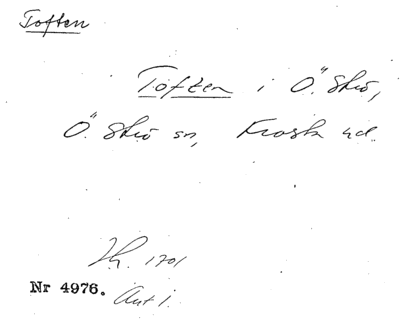 Toften
Toften i Ö. Skrö,
Ö. Skrö sn, Frosta hd.
Jb. 1701
Nr 4976. Ant 1.